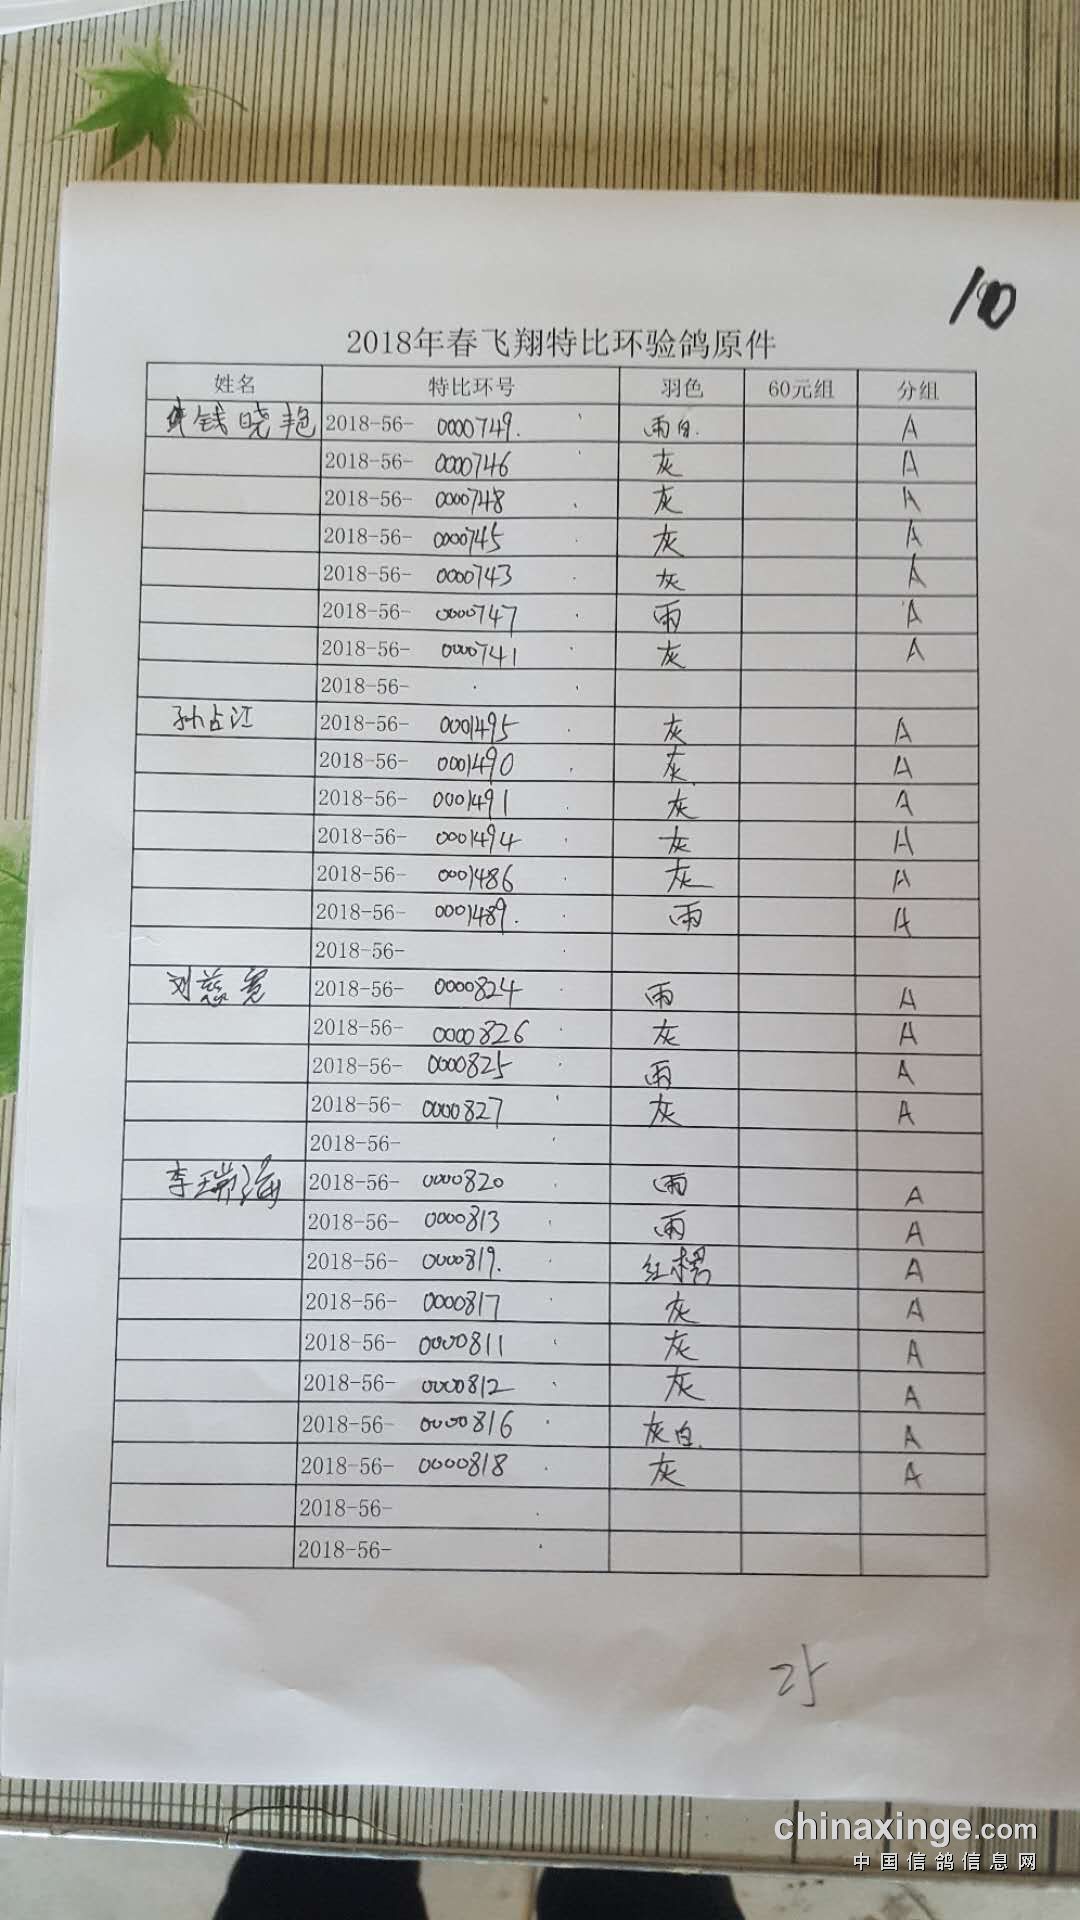 10
2018年春飞翔特比环验鸽原件
姓名 特比环号 羽色 60元组 分组
钱晓艳 2018-56- 0000749. 雨白. A
2018-56- 0000746 灰 A
2018-56- 0000748 灰 A
2018-56- 0000745 灰 A
2018-56- 0000743 灰 A
2018-56- 0000747 雨 A
2018-56- 0000741 灰 A
2018-56-
孙占江 2018-56- 0001495 灰 A
2018-56- 0001490 灰 A
2018-56- 0001491 灰 A
2018-56- 0001494 灰 A
2018-56- 0001486 灰 A
2018-56- 0001489. 雨 A
2018-56-
刘慈宽 2018-56- 0000824 雨 A
2018-56- 0000826 灰 A
2018-56- 0000825 雨 A
2018-56- 0000827 灰 A
2018-56-
李瑞海 2018-56- 0000820 雨 A
2018-56- 0000813 雨 A
2018-56- 0000819. 红楞 A
2018-56- 0000817 灰 A
2018-56- 0000811 灰 A
2018-56- 0000812 灰 A
2018-56- 0000816 灰白. A
2018-56- 0000818 灰 A
2018-56-
2018-56-
25
chinaxinge.com
中国信鸽信息网